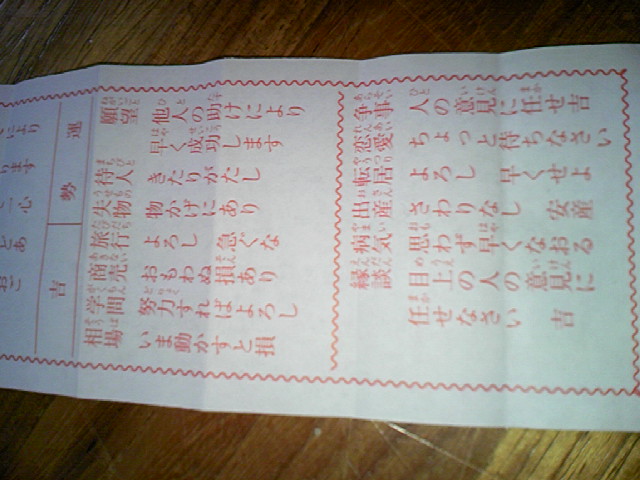 運勢
吉
願望 他人の助けにより
早く成功します
待人 きたりがたし
失物 物かげにあり
旅行 よろし 急ぐな
商売 おもわぬ損あり
学問 努力すればよろし
相場 いま動かすと損
争事 人の意見に任せ吉
恋愛 ちょっと待ちなさい
転居 よろし 早くせよ
出産 さわりなし 安産
病気 思わず早くなおる
縁談 目上の人の意見に
任せなさい 吉